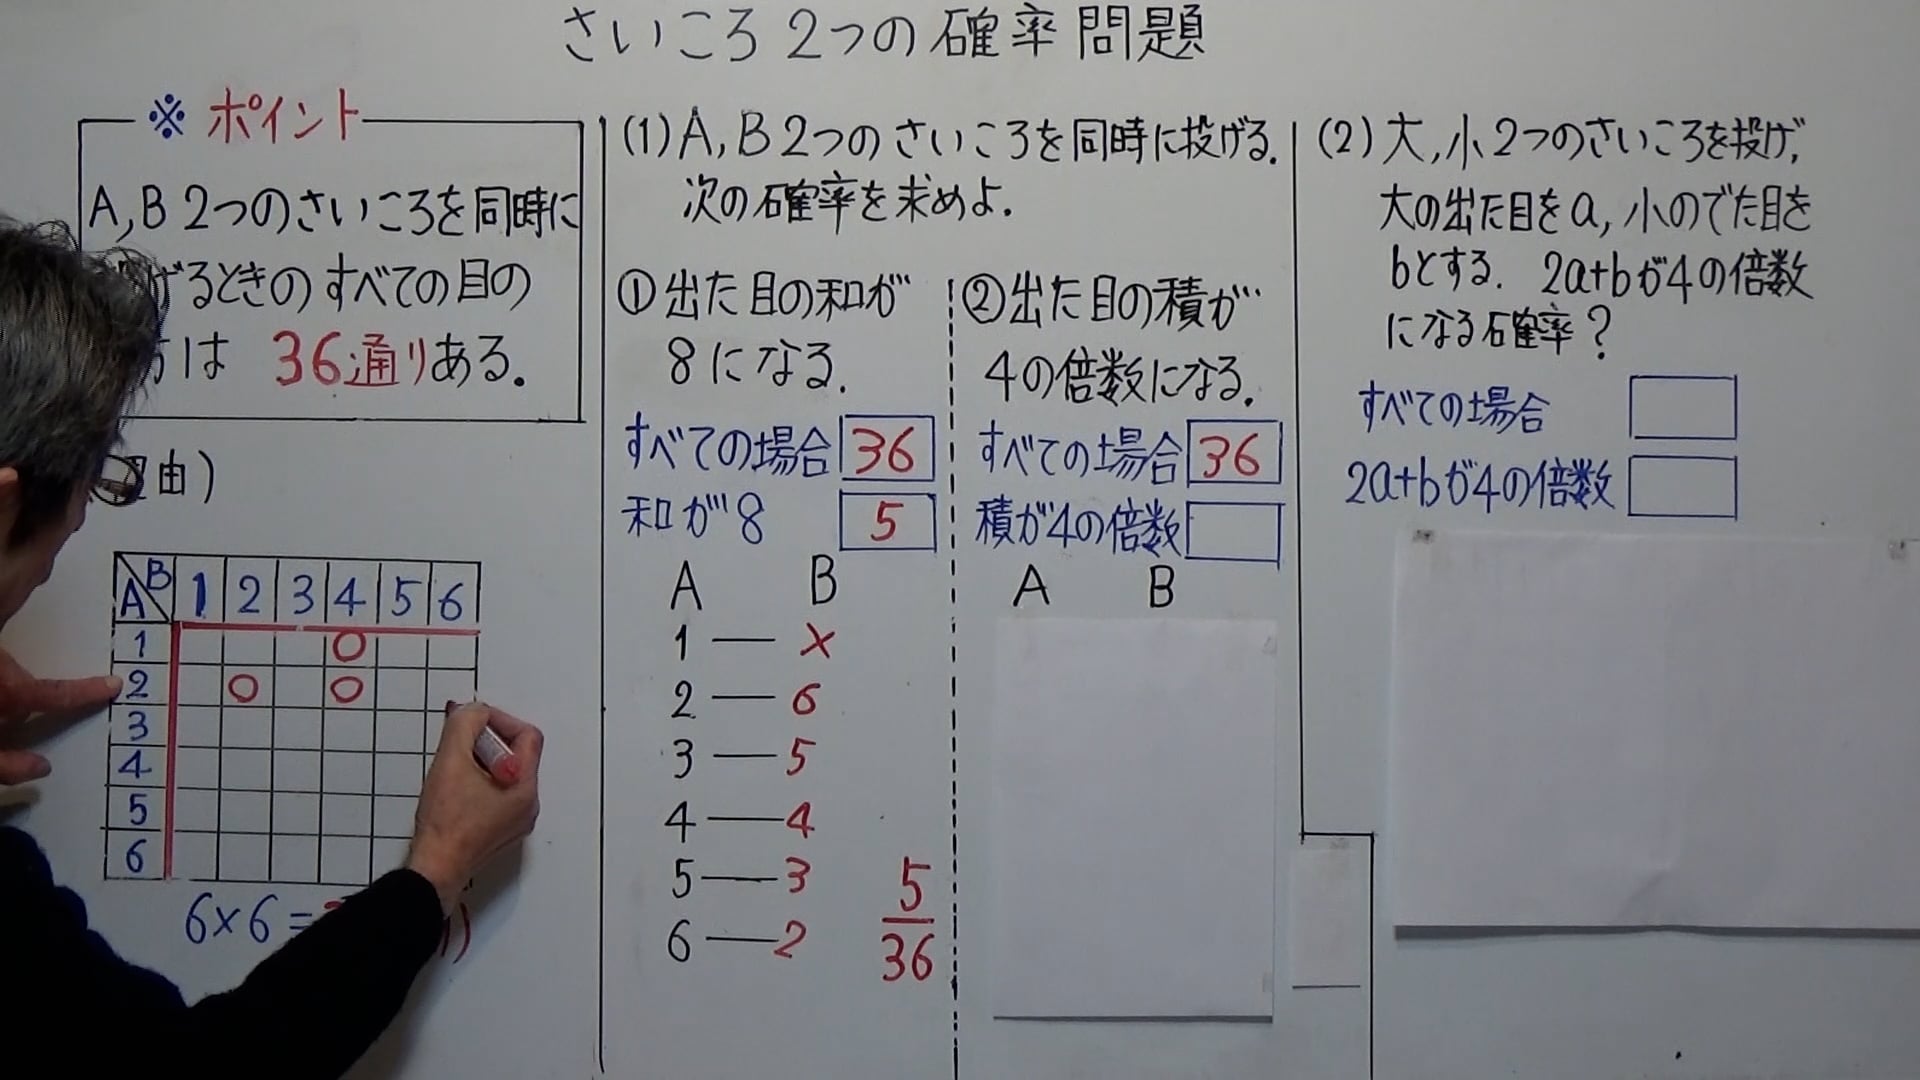 さいころ2つの確率問題
※ ポイント
A,B2つのさいころを同時に
げるときのすべての目の
は 36通りある.
由)
B 1 2 3 4 5 6
A
1 ○
2 ○ ○
3
4
5
6
6×6=
(1)A,B2つのさいころを同時に投げる.
次の確率を求めよ.
①出た目の和が
8になる.
すべての場合 36
和が8 5
A B
1 — ×
2 — 6
3 — 5
4 — 4
5 — 3
6 — 2
5
36
②出た目の積が
4の倍数になる.
すべての場合 36
積が4の倍数
A B
(2)大,小2つのさいころを投げ,
大の出た目をa,小のでた目を
bとする. 2a+bが4の倍数
になる確率?
すべての場合
2a+bが4の倍数